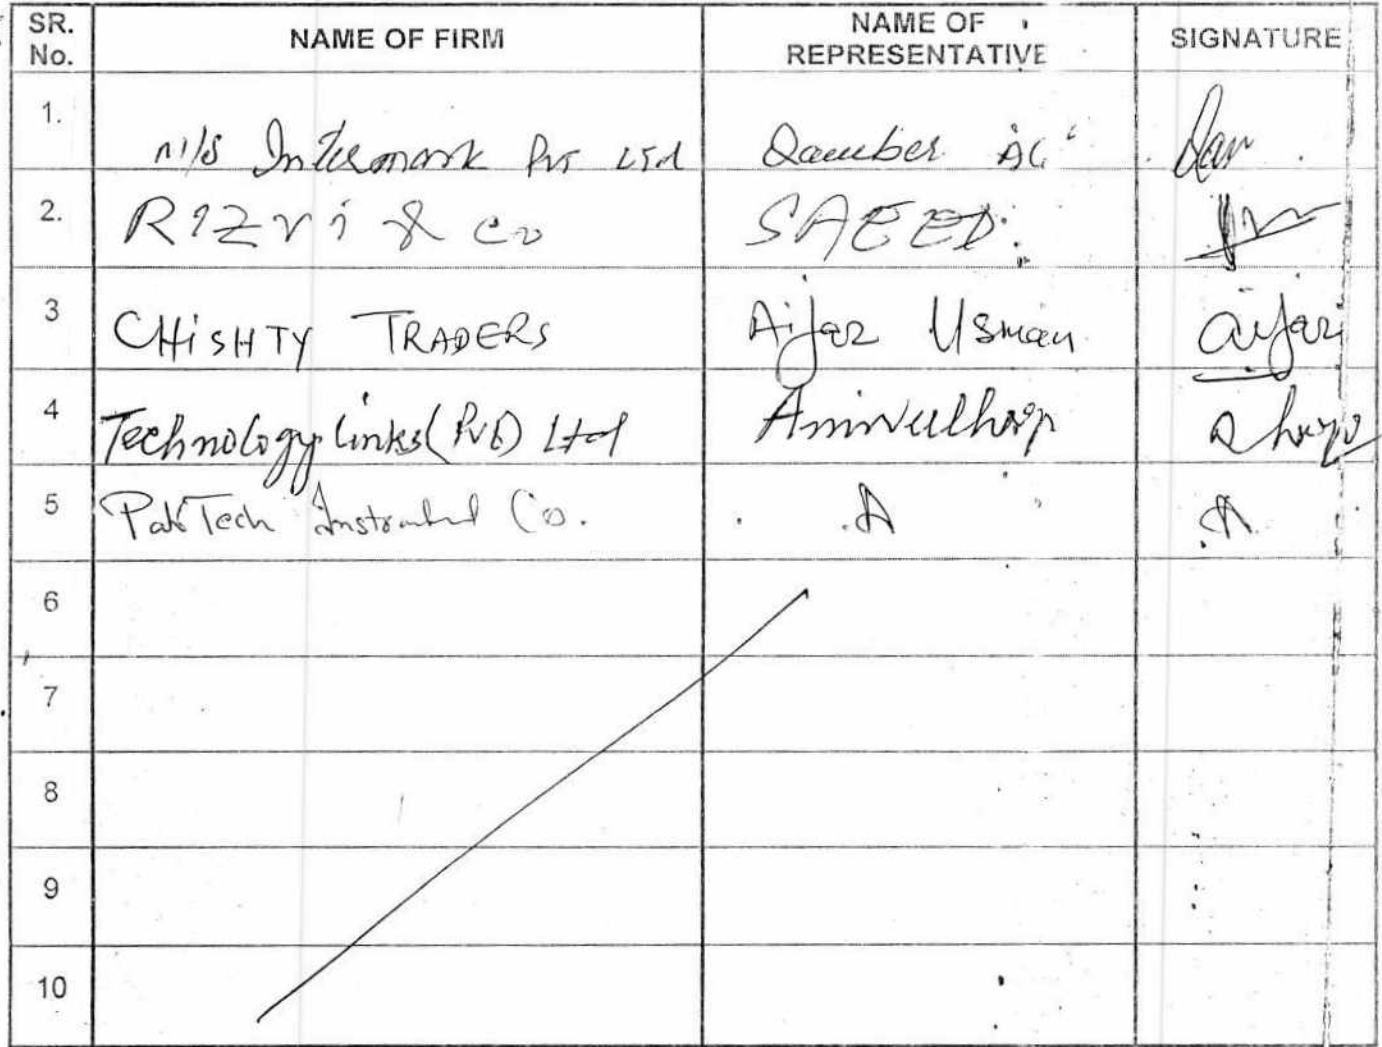 SR. No. NAME OF FIRM NAME OF REPRESENTATIVE SIGNATURE
1. M/S Intermark Pvt Ltd Qamber
2. RIZVi & Co SAEED
3 CHiSHTY TRADERS Aijaz Usman aijaz
4 Technology links (Pvt) Ltd
5 PakTech Co. A A
6
7
8
9
10